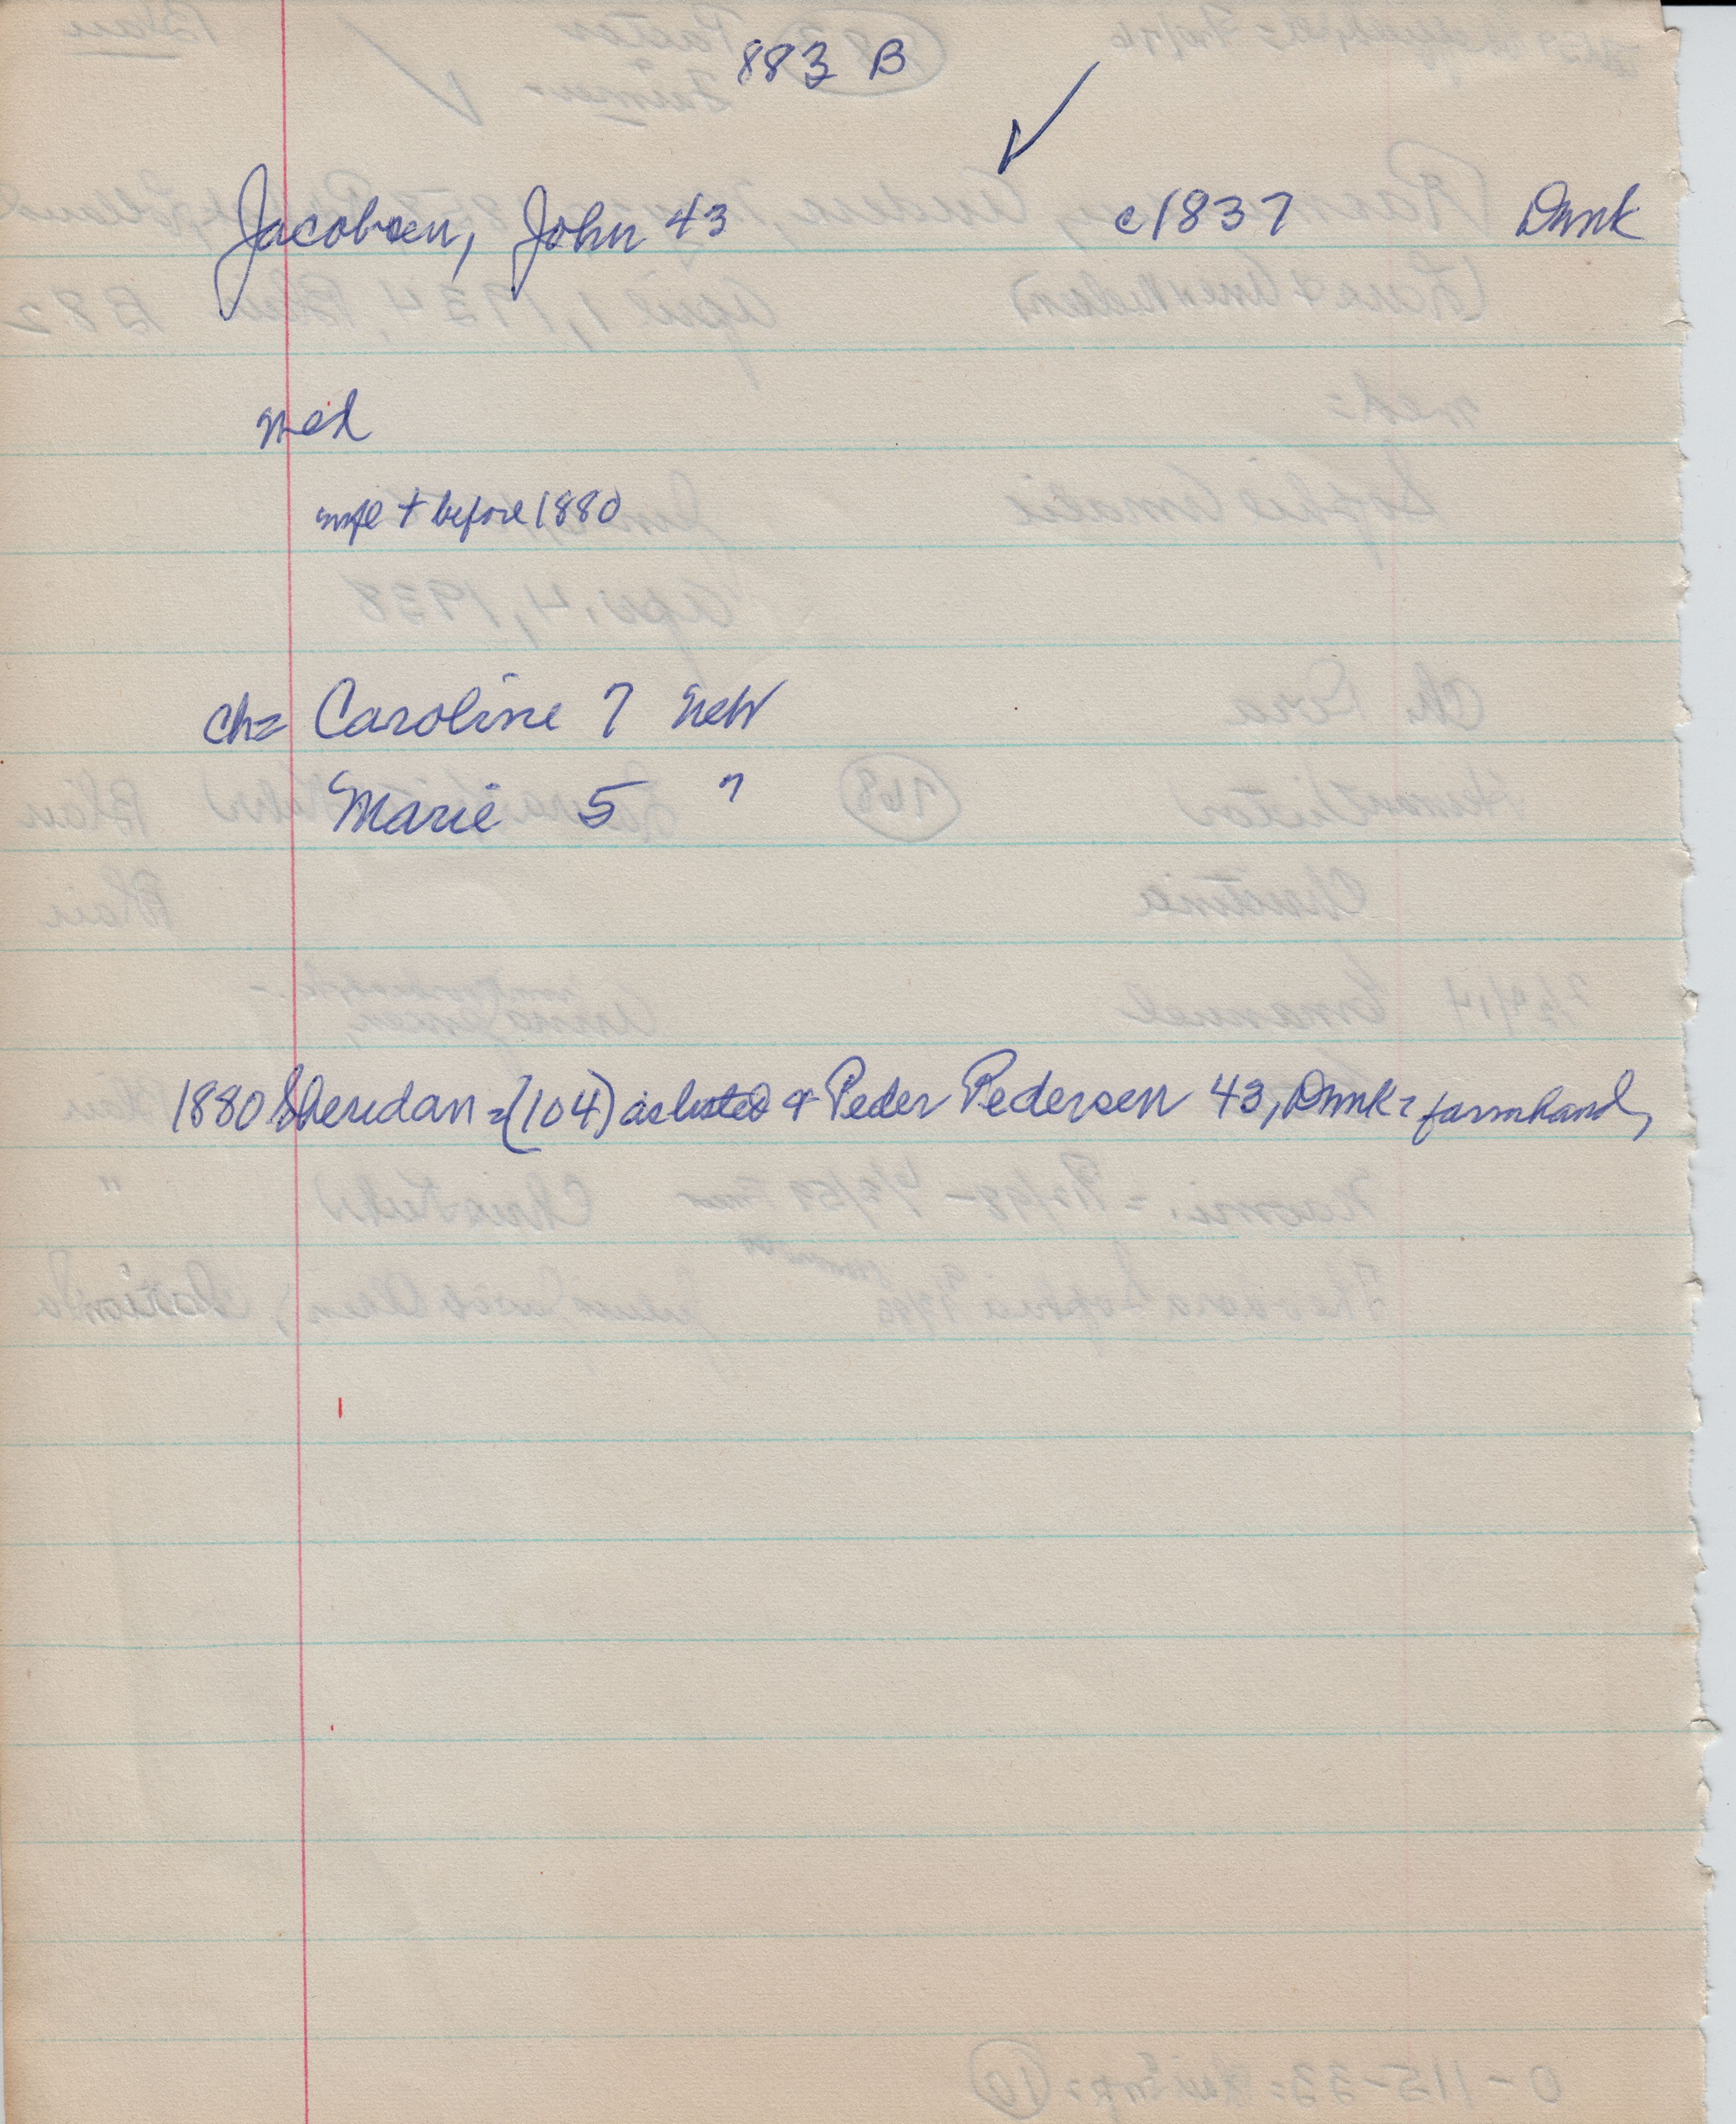 883 B
✓
Jacobsen, John 43 c1837 Dmk
med
wife + before 1880
ch= Caroline 7 neb
Marie 5 "
1880 Sheridan = (104) as listed & Peder Pedersen 43, Dmk = farmhand,